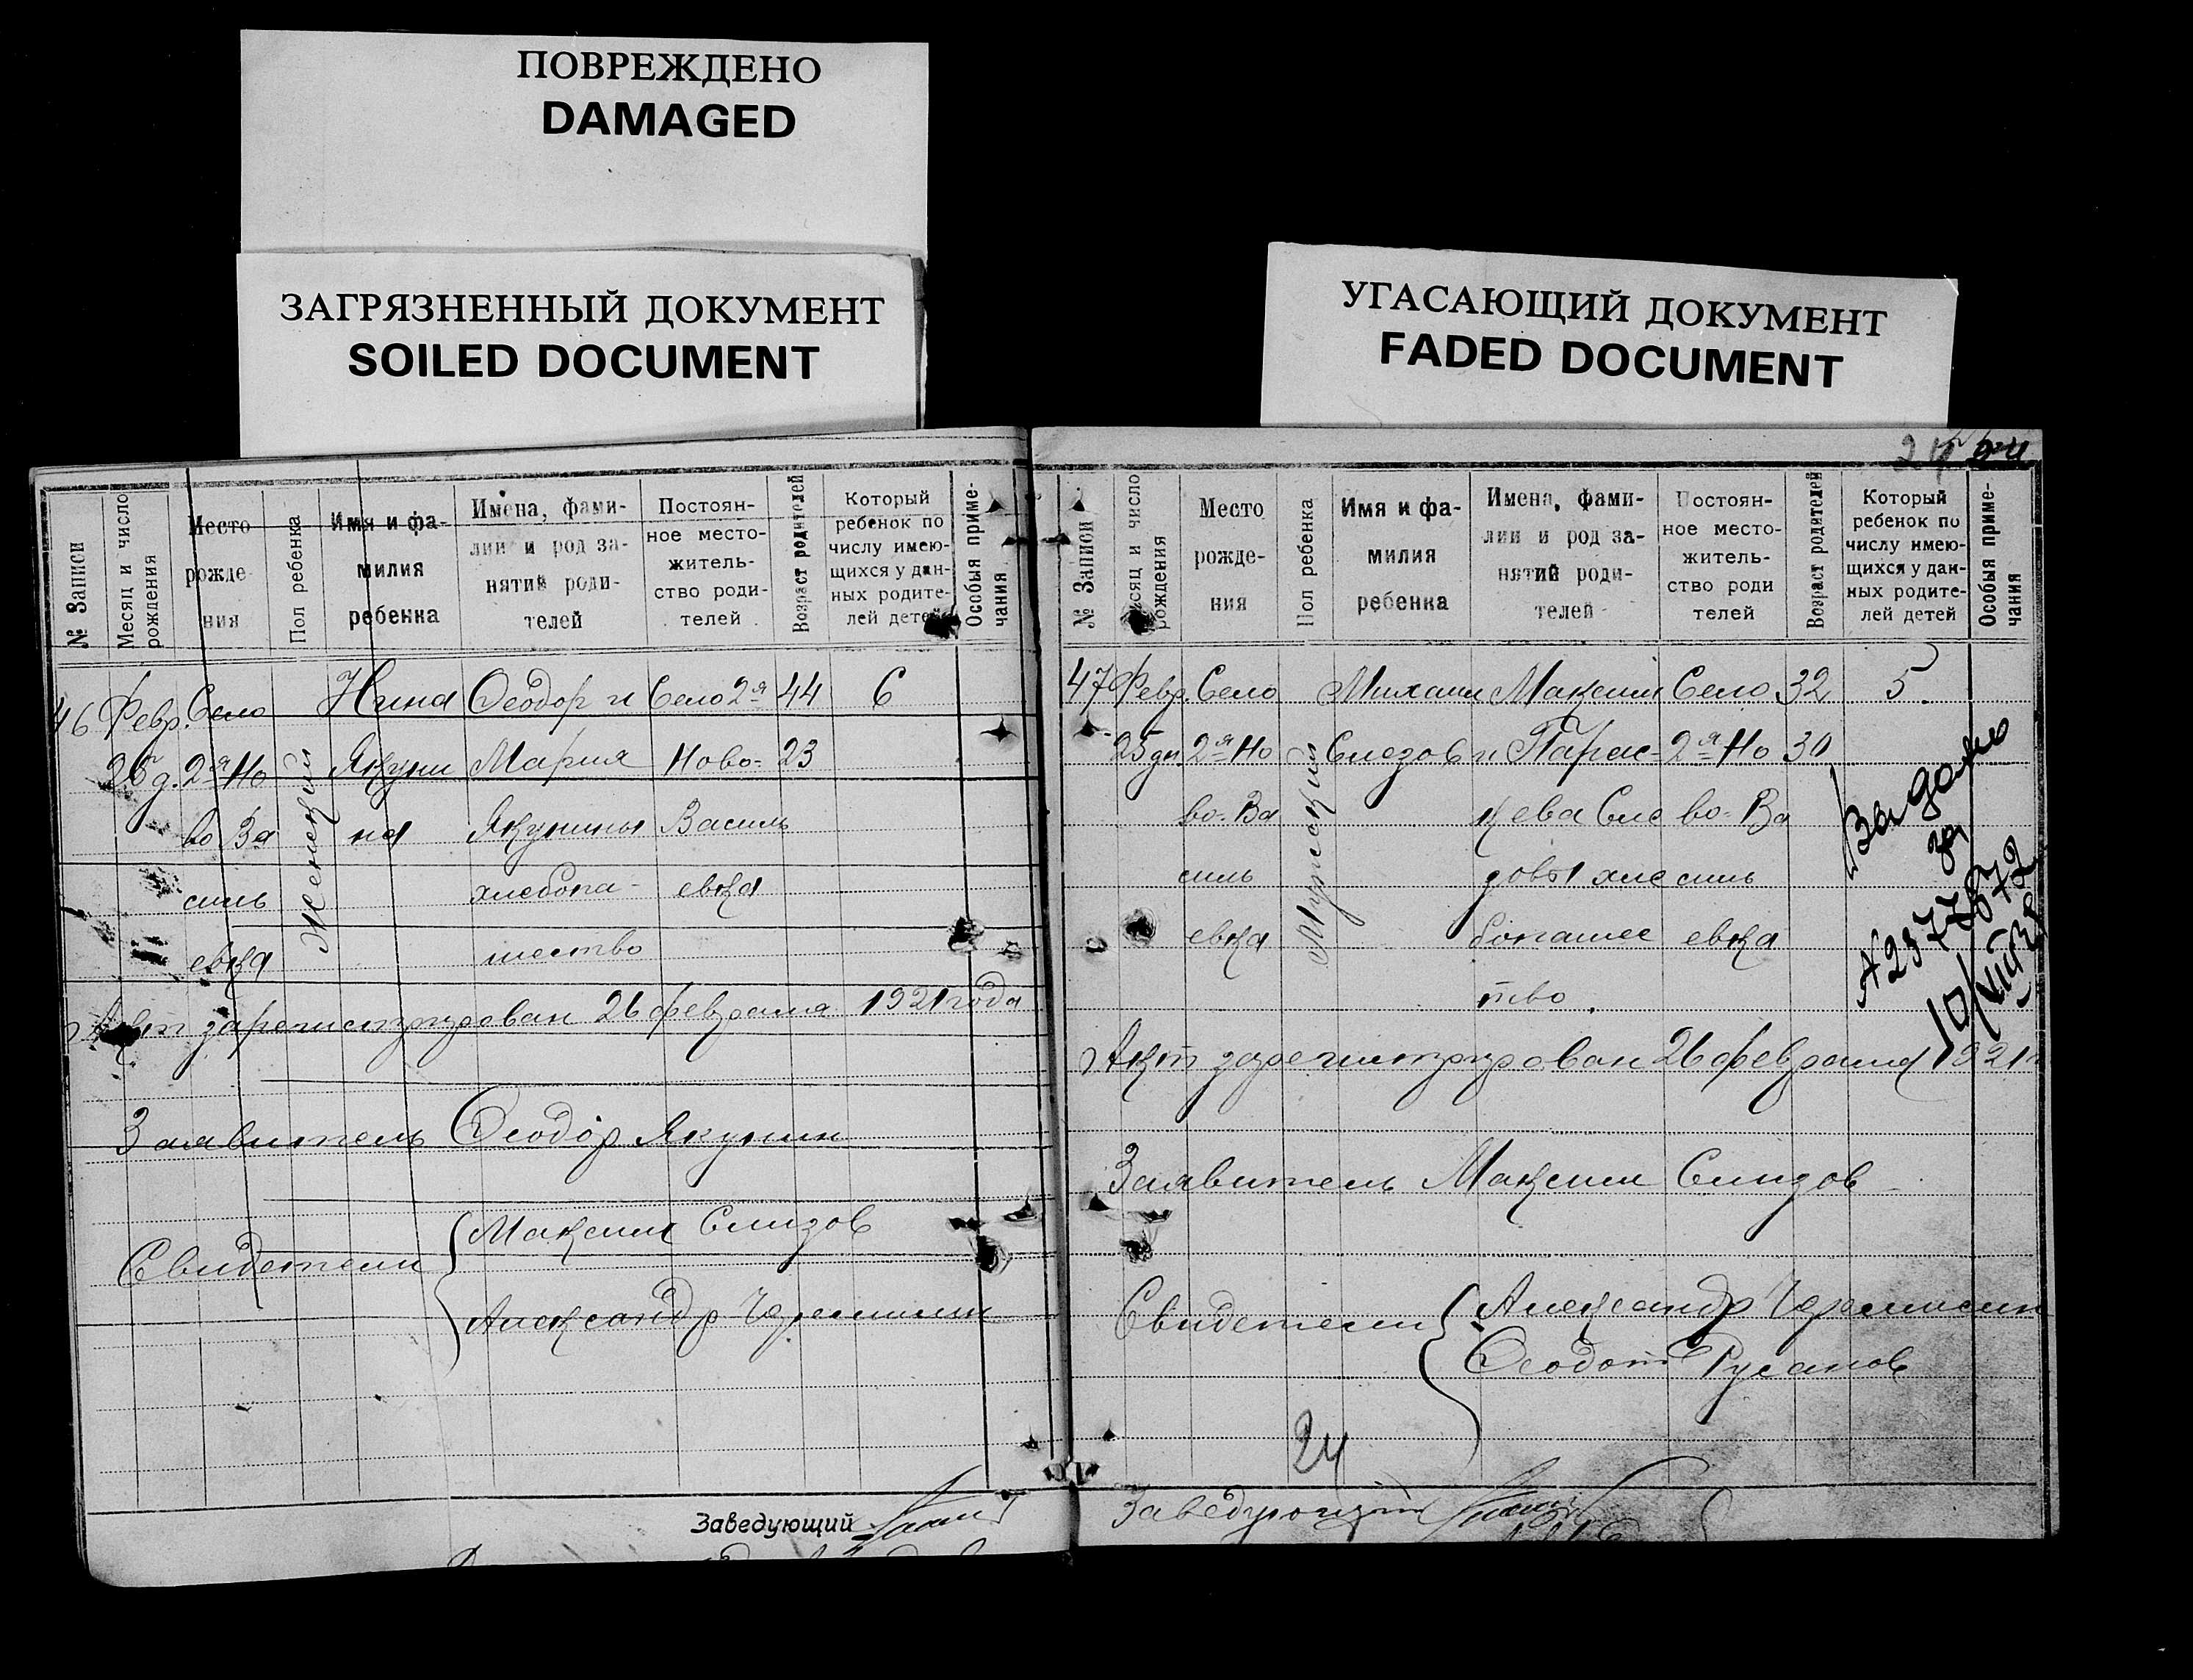 ПОВРЕЖДЕНО
DAMAGED
ЗАГРЯЗНЕННЫЙ ДОКУМЕНТ
SOILED DOCUMENT
УГАСАЮЩИЙ ДОКУМЕНТ
FADED DOCUMENT
№ Записи
Месяц и число рождения
Место рожде- ния
Пол ребенка
Имя и фа- милия ребенка
Имена, фами- лии и род за- нятий роди- телей
Постоян- ное место- житель- ство роди- телей
Возраст родителей
Который ребенок по числу имею- щихся у дан- ных родите- лей детей
Особыя приме- чания
46 Февр. Село Нина Феодор и Село 2я 44 6
26 д. 2я Но Женский Якуни Мария Ново- 23
во Ва на Якунины Василь
силь хлебопа- евка
евка шество
Акт зарегистрирован 26 февраля 1921 года
Заявитель Феодор Якунин
Свидетели Максим Слизов
Александр Черемисин
Заведующий
24
№ Записи
Месяц и число рождения
Место рожде- ния
Пол ребенка
Имя и фа- милия ребенка
Имена, фами- лии и род за- нятий роди- телей
Постоян- ное место- житель- ство роди телей
Возраст родителей
Который ребенок по числу имею- щихся у дан- ных родите- лей детей
Особыя приме- чания
47 Февр. Село Михаил Максим Село 32 5
25 дн. 2я Но Мужский Слезов и Парас- 2я Но 30
во- Ва кева Сле во- Ва
силь зовы хле силь
евка бопашес евка
тво
Акт зарегистрирован 26 февраля 1921 г
Заявитель Максим Слизов
Свидетели Александр Черемисин
Феодот Русанов
24
Заведующий